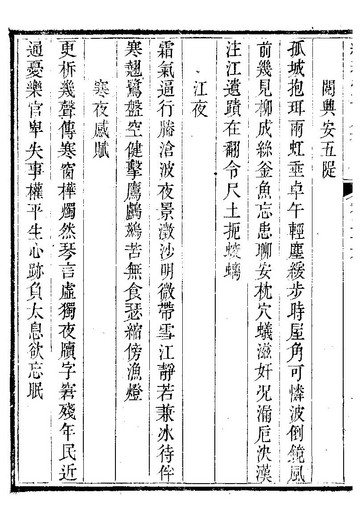 閱興安五陡
孤城抱珥兩虹垂卓午輕塵緩步時屋角可憐波倒鏡風
前幾見柳成絲釜魚忘患聊安枕穴蟻滋奸況漏卮決漢
注江遺蹟在翻令尺土扼蛟螭
江夜
霜氣逼行縢滄波夜景澂沙明微帶雪江靜若兼冰待伴
寒翹鷺盤空健擊鷹鸕鷀苦無食瑟縮傍漁燈
寒夜感賦
更柝幾聲傳寒窗樺燭然琴言虛獨夜牘字窘殘年民近
通憂樂官卑失事權平生心跡負太息欲忘眠